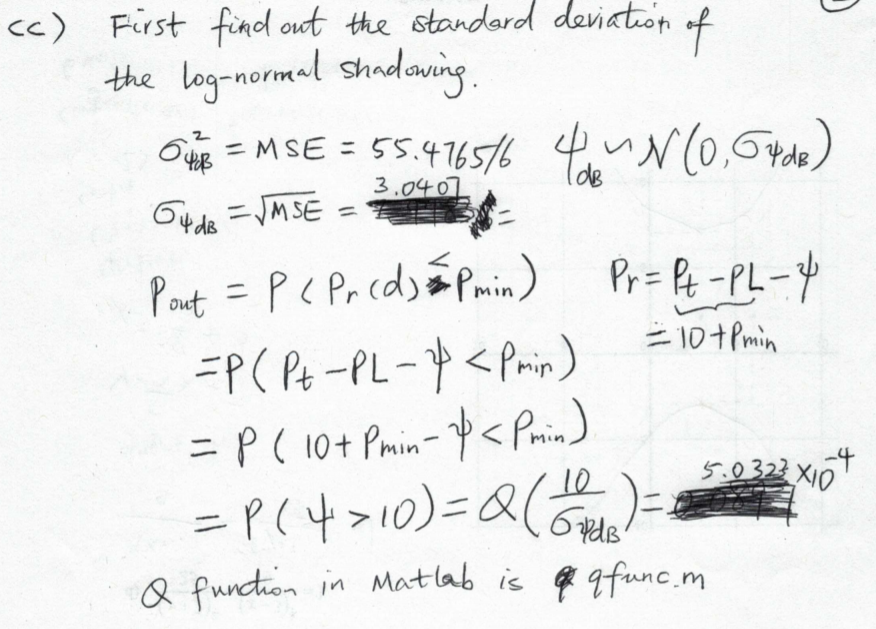 (c) First find out the standard deviation of
the log-normal shadowing.
σ²ψdB = MSE = 55.4765/6 ψdB ~ N(0, σψdB)
σψdB = √MSE = 3.0407 =
Pout = P(Pr(d) < Pmin) Pr = Pt - PL - ψ
= 10 + Pmin
= P(Pt - PL - ψ < Pmin)
= P(10 + Pmin - ψ < Pmin)
= P(ψ > 10) = Q(10/σψdB) = 5.0323 × 10⁻⁴
Q function in Matlab is qfunc.m